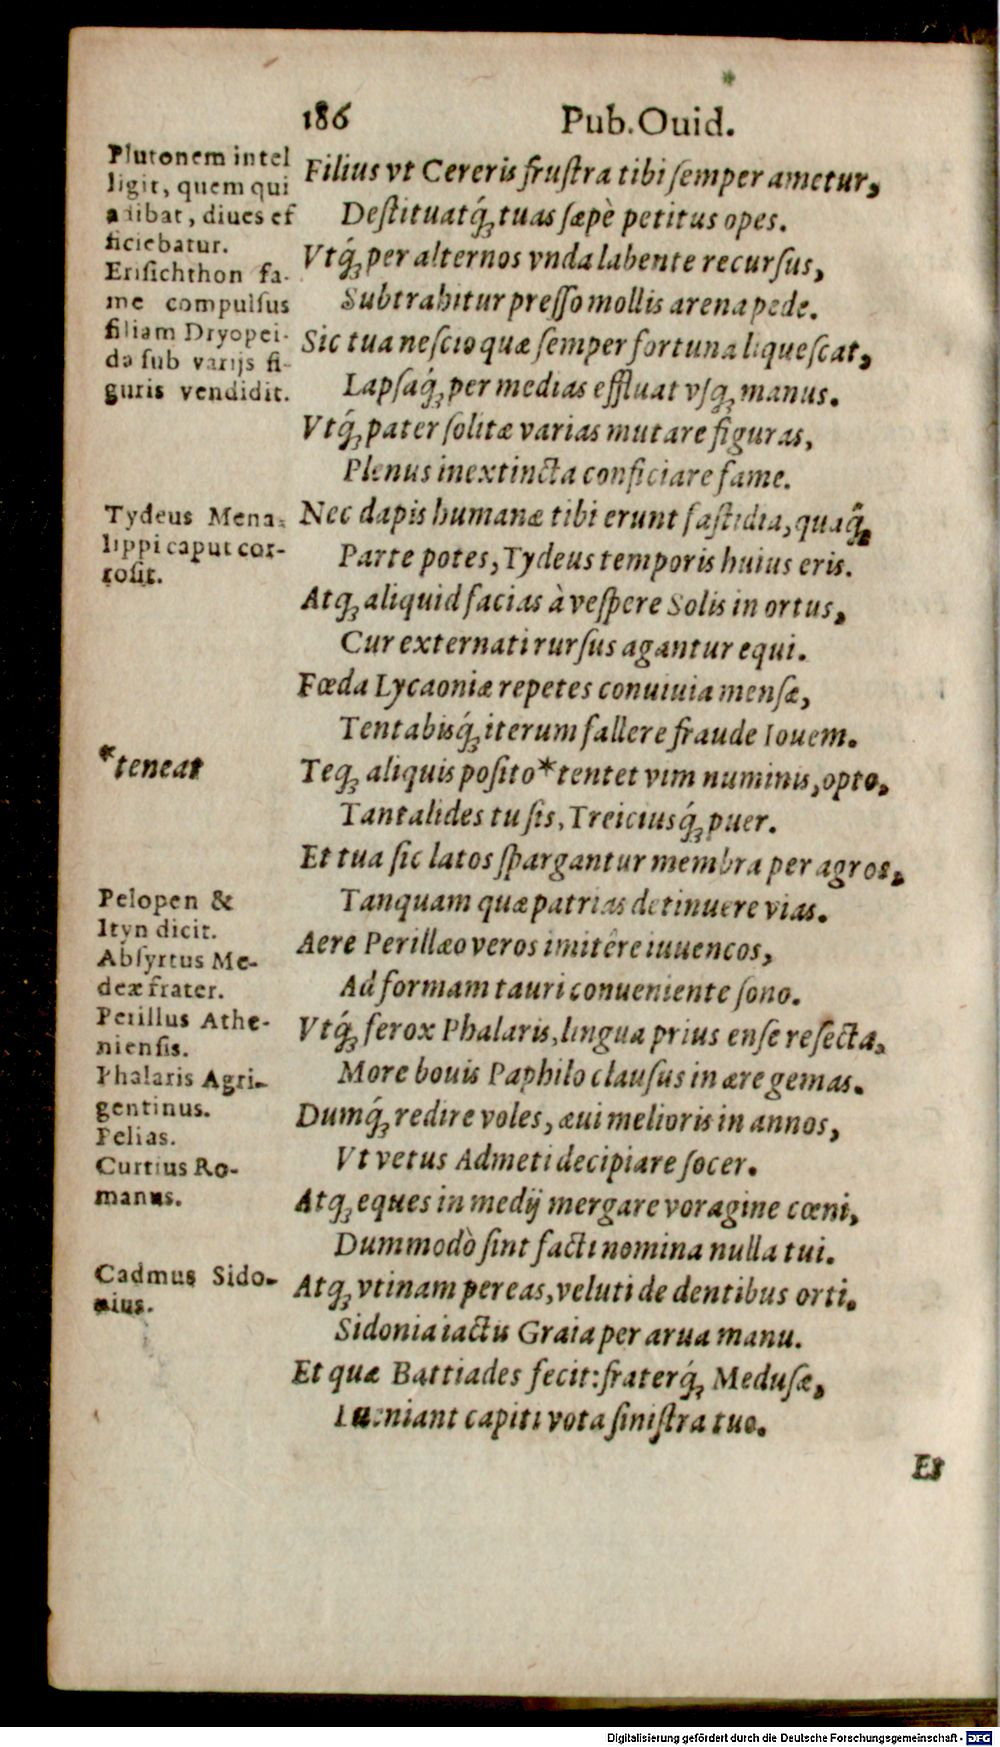 186 Pub. Ouid.
Plutonem intel
ligit, quem qui
adibat, diues ef
ficiebatur.
Erisichthon fa-
me compulsus
filiam Dryopei-
da sub varijs fi-
guris vendidit.
Tydeus Mena-
lippi caput cor-
rosit.
*teneat
Pelopen &
Ityn dicit.
Absyrtus Me-
deæ frater.
Perillus Athe-
niensis.
Phalaris Agri-
gentinus.
Pelias.
Curtius Ro-
manus.
Cadmus Sido-
nius.
Filius vt Cereris frustra tibi semper ametur,
Destituatq́ꝫ tuas sæpè petitus opes.
Vtq́ꝫ per alternos vnda labente recursus,
Subtrahitur presso mollis arena pede.
Sic tua nescio quæ semper fortuna liquescat,
Lapsaq́ꝫ per medias effluat vsqꝫ manus.
Vtq́ꝫ pater solitæ varias mutare figuras,
Plenus inextincta conficiare fame.
Nec dapis humanæ tibi erunt fastidia, quaq́ꝫ
Parte potes, Tydeus temporis huius eris.
Atqꝫ aliquid facias à vespere Solis in ortus,
Cur externati rursus agantur equi.
Fœda Lycaoniæ repetes conuiuia mensæ,
Tentabisq́ꝫ iterum fallere fraude Iouem.
Teqꝫ aliquis posito * tentet vim numinis, opto,
Tantalides tu sis, Treiciusq́ꝫ puer.
Et tua sic latos spargantur membra per agros,
Tanquam quæ patrias detinuere vias.
Aere Perillæo veros imitêre iuuencos,
Ad formam tauri conueniente sono.
Vtq́ꝫ ferox Phalaris, lingua prius ense resecta,
More bouis Paphilo clausus in ære gemas.
Dumq́ꝫ redire voles, æui melioris in annos,
Vt vetus Admeti decipiare socer.
Atqꝫ eques in medij mergare voragine cœni,
Dummodò sint facti nomina nulla tui.
Atqꝫ vtinam pereas, veluti de dentibus orti.
Sidonia iactis Graia per arua manu.
Et quæ Battiades fecit: fraterq́ꝫ Medusæ,
capiti vota sinistra tuo.
Et
Digitalisierung gefördert durch die Deutsche Forschungsgemeinschaft - DFG